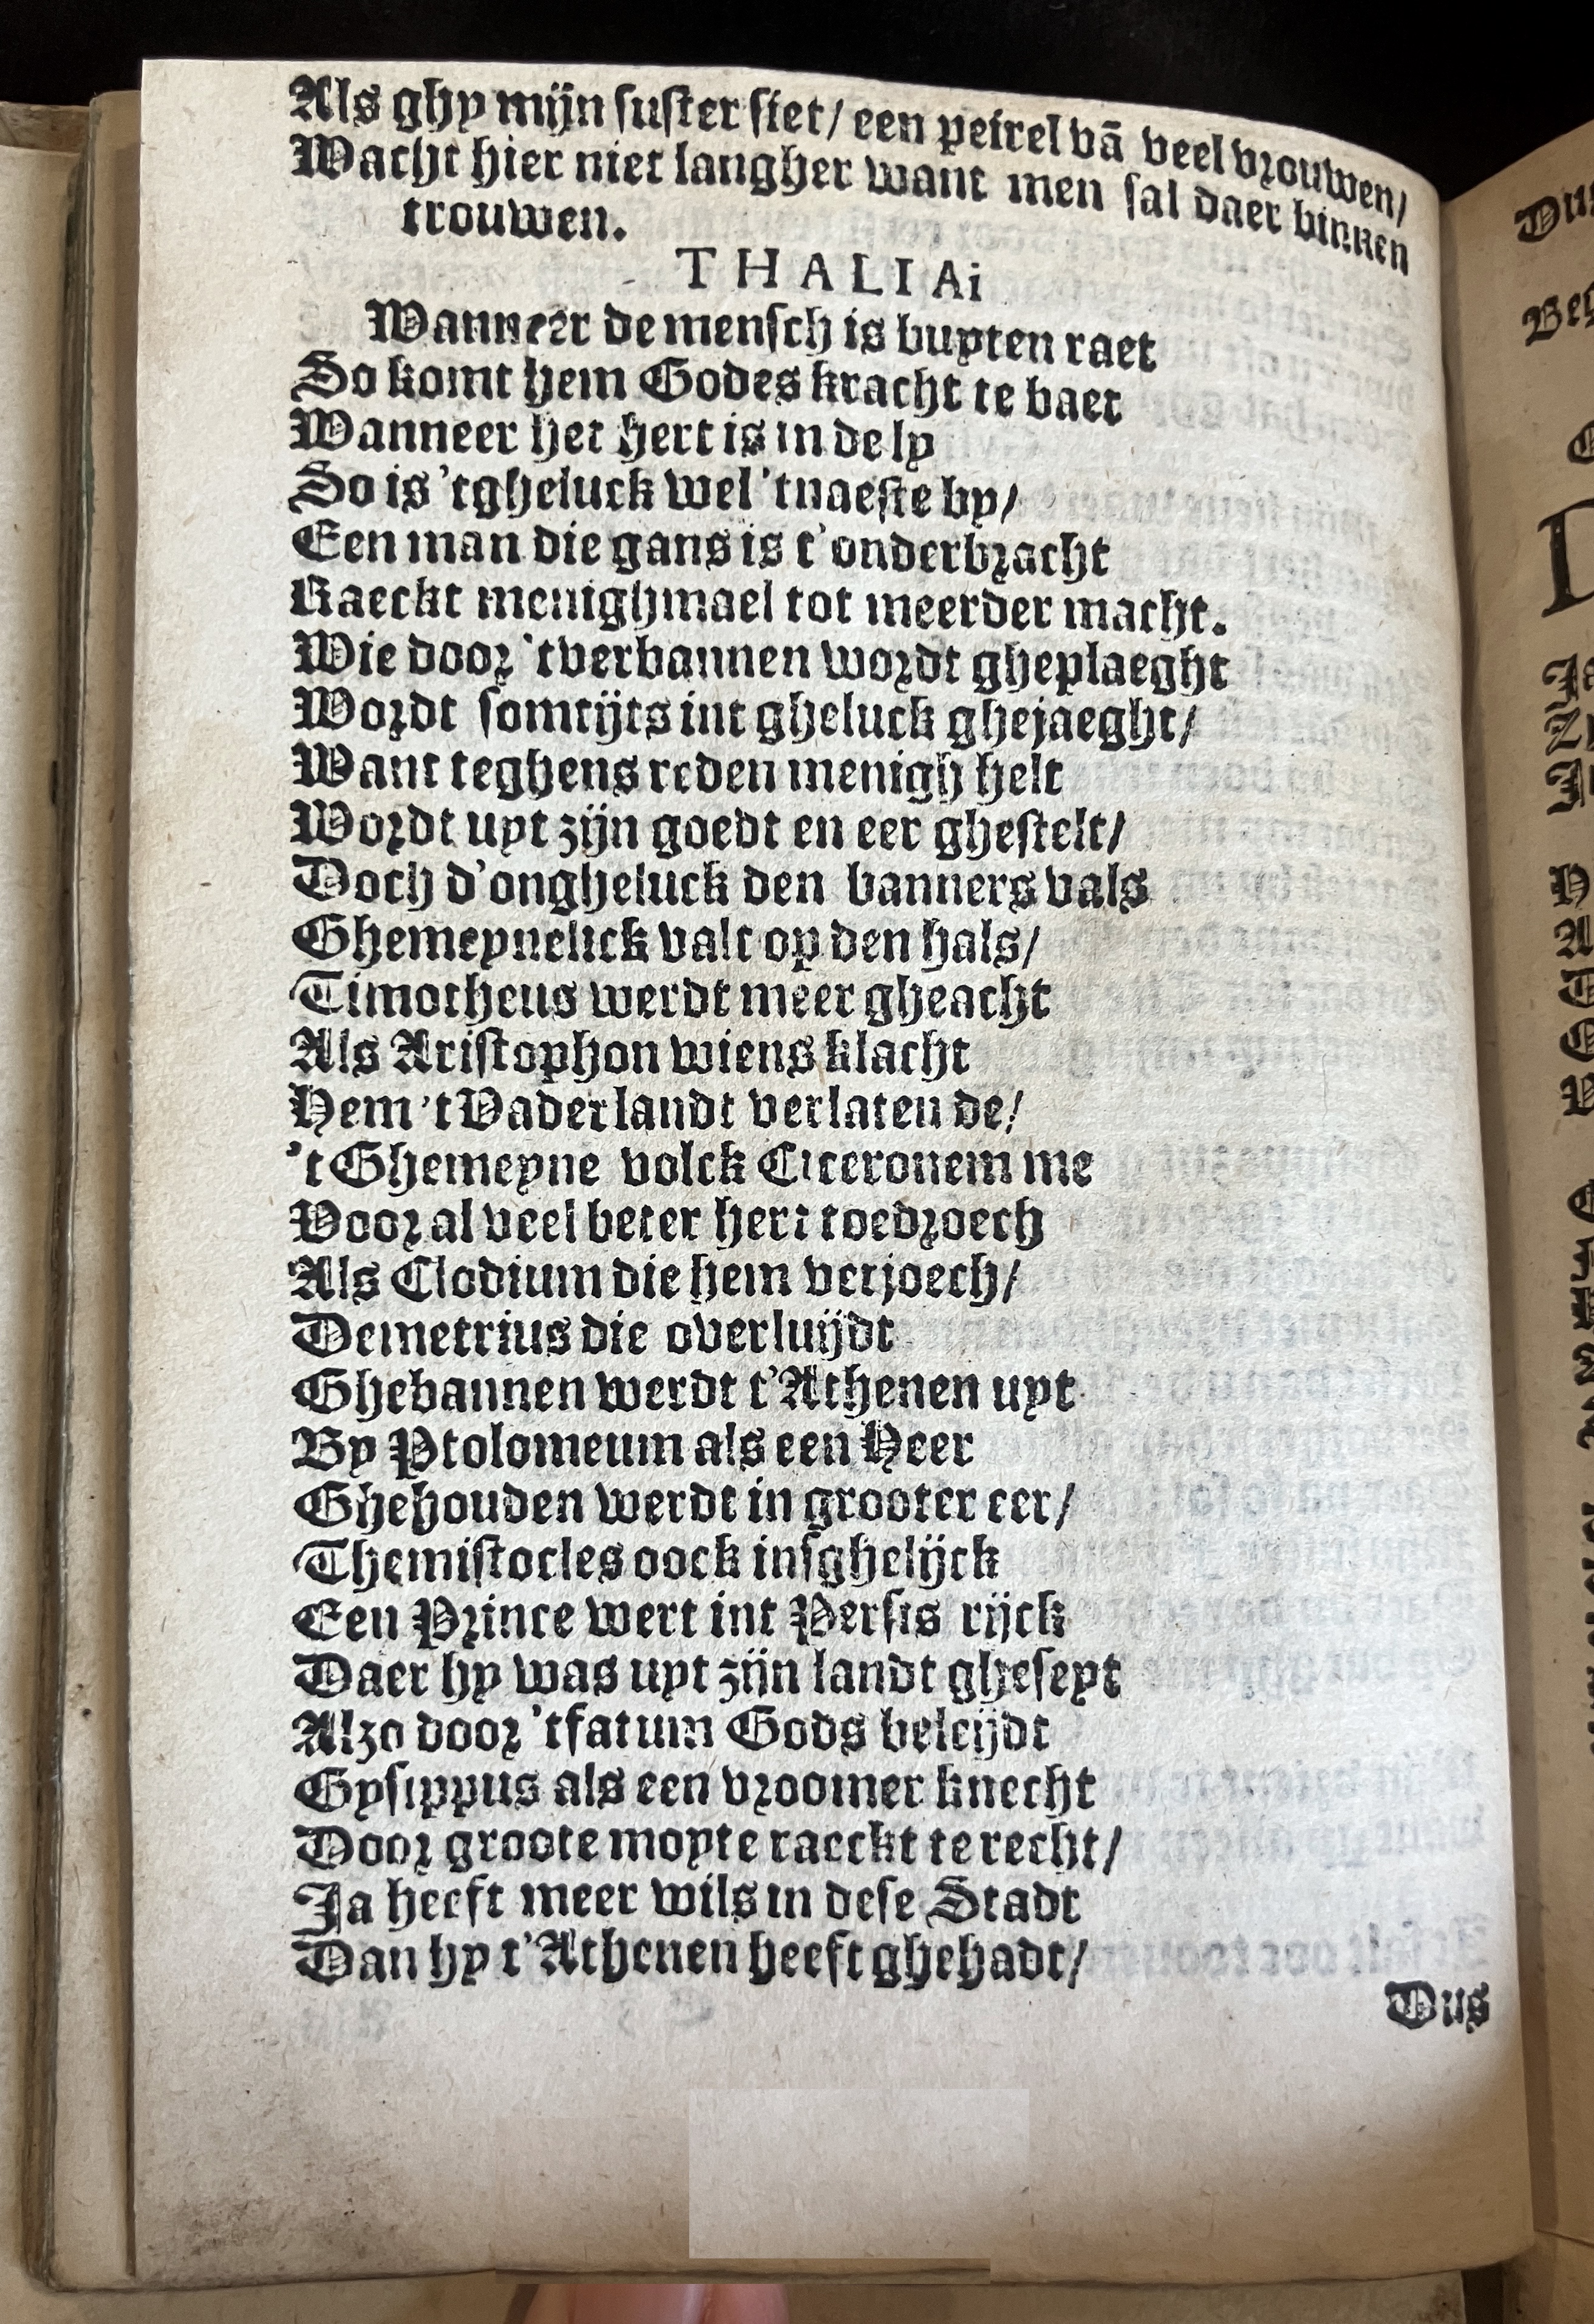 Als ghy mijn suster siet/ een peirel vā veel vrouwen/
Wacht hier niet langher want men sal daer binnen
trouwen.
THALIAi
Wanneer de mensch is buyten raet
So komt hem Godes kracht te baet
Wanneer het hert is in de ly
So is 'tgheluck wel 'tnaeste by/
Een man die gans is t'onderbracht
Raeckt menighmael tot meerder macht.
Wie door 'tverbannen wordt gheplaeght
Wordt somtijts int gheluck ghejaeght/
Want teghens reden menigh helt
Wordt uyt zijn goedt en eer ghestelt/
Doch d'ongheluck den banners vals
Ghemeynelick valt op den hals/
Timotheus werdt meer gheacht
Als Aristophon wiens klacht
Hem 't Vaderlandt verlaten de/
't Ghemeyne volck Ciceronem me
Voor al veel beter hert toedroech
Als Clodium die hem verjoech/
Demetrius die overluijdt
Ghebannen werdt t'Athenen uyt
By Ptolomeum als een Heer
Ghehouden werdt in grooter eer/
Themistocles oock insghelijck
Een Prince wert int Persis rijck
Daer hy was uyt zijn landt gheseyt
Alzo door 'tfatum Gods beleijdt
Gysippus als een vroomer knecht
Door groote moyte raeckt te recht/
Ja heeft meer wils in dese Stadt
Dan hy t'Athenen heeft ghehadt/
Dus